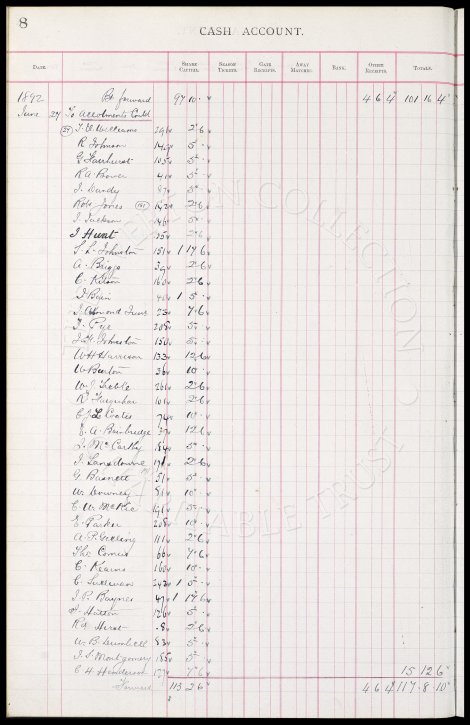 8
CASH ACCOUNT.
DATE. SHARE CAPITAL. SEASON TICKETS. GATE RECEIPTS. AWAY MATCHES. BANK. OTHER RECEIPTS. TOTALS.
1892 Bt forward 97 10 4 6 4 101 16 4
June 27 To Allotments Contd
T. W. Williams 2 6
R Johnson 5
G Fairhurst 5
R A Bower 5
J. Dundy 5
Robt Jones 2 6
J. Jackson 5
J Hunt 2 6
S. L. Johnston 151 1 17 6
A. Briggs 2 6
C. Kitson 160 2 6
J Bain 1 5
J. Almond Junr 7 6
T. Pye 208 5
J. H. Johnston 150 5
W H Harrison 133 12 6
W Barton 36 10
W. J. Treble 261 2 6
R Farquhar 101 2 6
Coates 74 10
E. A. Bainbridge 12 6
J. McCarthy 84 5
J. Lansdowne 2 6
G Barnett 51 5
W. Downey 10
C. W. McKie 5
E. Parker 208 10
A. P. 111 2 6
Tho Comer 66 7 6
C. Kearns 160 10
C. Sullivan 242 1 5
J. P. Baynes 47 1 17 6
Hatton 126 5
Hirst 8 2 6
W. B. 83 5
J. S. Montgomery 185 5
C H Henderson 7 6 15 12 6
Forward 113 2 6 4 6 4 117 8 10
COLLECTION
CHARITABLE TRUST